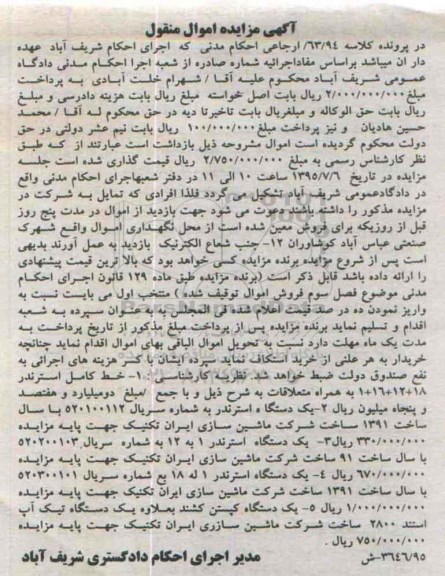 آگهی مزایده اموال منقول
در پرونده کلاسه ۶۳/۹۴/ ارجاعی احکام مدنی که اجرای احکام شریف آباد عهده
دار ان میباشد براساس مفاداجرائیه شماره صادره از شعبه اجرا احکام مدنی دادگاه
عمومی شریف آباد محکوم علیه آقا / شهرام خلت آبادی به پرداخت
مبلغ ۲/۰۰۰/۰۰۰/۰۰۰ ریال بابت اصل خواسته مبلغ ریال بابت هزینه دادرسی و مبلغ
ریال بابت حق الوکاله و مبلغریال بابت تاخیرتا دیه در حق محکوم له آقا / محمد
حسین هادیان و نیز پرداخت مبلغ ۱۰۰/۰۰۰/۰۰۰ ریال بابت نیم عشر دولتی در حق
دولت محکوم گردیده است اموال مشروحه ذیل بازداشت است عبارتند از که طبق
نظر کارشناس رسمی به مبلغ ۲/۷۵۰/۰۰۰/۰۰۰ ریال قیمت گذاری شده است جلسه
مزایده در تاریخ ۱۳۹۵/۷/۶ ساعت ۱۰ الی ۱۱ در دفتر شعبهاجرای احکام مدنی واقع
در دادگاهعمومی شریف آباد تشکیل می گردد فلذا افرادی که تمایل به شرکت در
مزایده مذکور را داشته باشند دعوت می شود جهت بازدید از اموال در مدت پنج روز
قبل از روزیکه برای فروش معین شده است از محل نگهداری اموال واقع شهرک
صنعتی عباس آباد کوشاوران ۱۲- جنب شعاع الکترنیک بازدید به عمل آورند بدیهی
است پس از شروع مزایده برنده مزایده کسی خواهد بود که بالا ترین قیمت پیشنهادی
را ارائه داده باشد قابل ذکر است (برنده مزایده طبق ماده ۱۲۹ قانون اجرای احکام
مدنی موضوع فصل سوم فروش اموال توقیف شده ) منتخب اول می بایست نسبت به
واریز نمودن ده در صد قیمت اعلام شده فی المجلس به به عنوان سپرده به شعبه
اقدام و تسلیم نماید برنده مزایده پس از پرداخت مبلغ مذکور از تاریخ پرداخت به
مدت یک ماه مهلت دارد نسبت به تحویل اموال الباقی بهای اموال اقدام نماید چنانچه
خریدار به هر علتی از خرید استکاف نماید سپرده ایشان با کسر هزینه های اجرائی به
نفع صندوق دولت ضبط خواهد شد. نظریه کارشناسی : ۱- خط کامل استرندر
۱+۱۶+۱۲+۱۸ به همراه متعلاقات به شرح ذیل و با جمع /مبلغ دومیلیارد و هفتصد
و پنجاه میلیون ریال ۲-یک دستگاه ه استرندر به شماره سریال ۵۲۰۱۰۰۱۱۲ با سال
ساخت ۱۳۹۱ ساخت شرکت ماشین سازی ایران تکنیک جهت پایه مزایده
۳۳۰/۰۰۰/۰۰۰ ریال۳- یک دستگاه استرندر ۱ به ۱۲ به شماره سریال ۵۲۰۲۰۰۱۰۳
با سال ساخت ۹۱ ساخت شرکت ماشین سازی ایران تکنیک جهت پایه مزایده
۶۷۰/۰۰۰/۰۰۰ ریال ٤- یک دستگاه استرندر ۱ له ۱۸ به شماره سریال ۵۲۰۳۰۰۱۰۱
با سال ساخت ۱۳۹۱ ساخت شرکت ماشین سازی ایران تکنیک جهت پایه مزایده
۱/۰۰۰/۰۰۰/۰۰۰ ریال ۵- یک دستگاه کپستن کشند بعلاوه یک دستگاه تیک آپ
استند ۲۸۰۰ ساخت شرکت ماشین سازری ایران تکنیک جهت پایه مزایده
۷۵۰/۰۰۰/۰۰۰ ریال .
۳۶۴۶/۹۵-ش مدیر اجرای احکام دادگستری شریف آباد